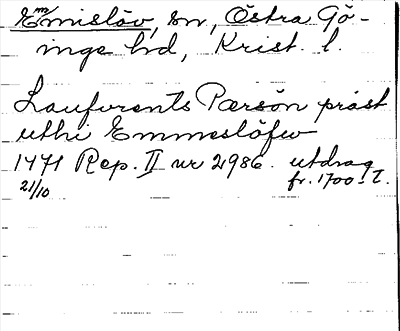 Emmislöv, sn, Östra Gö-
inge hd, Krist. l.
Laufvrents Pærsön præst
uthi Emmeslöfw
1471 Rep. II nr 2986. utdrag
21/10 fr. 1700-t.